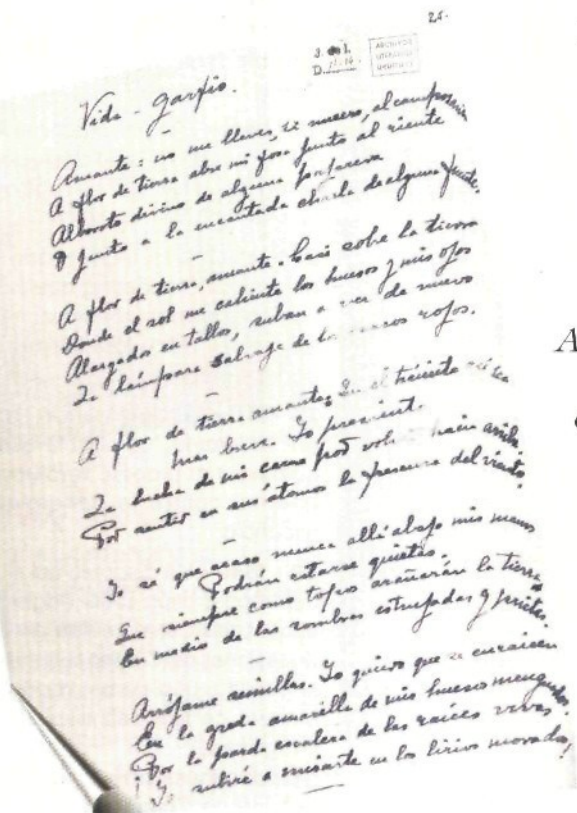 25.
3 de I.
D.
ARCHIVOS
LITERARIOS
URUGUAY
Vida - garfio.
Amante: no me lleves, si muero, al camposanto
A flor de tierra abre mi fosa junto al riente
Alboroto divino de alguna pajarera
O junto a la encantada charla de alguna fuente.
A flor de tierra, amante. Casi sobre la tierra
Donde el sol me caliente los huesos y mis ojos
Alargados en tallos, suban a ver de nuevo
La lámpara salvaje de los ocasos rojos.
A flor de tierra amante; que el tránsito así sea
mas breve. Yo presiento
La lucha de mi carne por volver hacia arriba
Por sentir en sus átomos la frescura del viento.
Yo sé que acaso nunca allí abajo mis manos
Podrán estarse quietas.
Que siempre como topos arañarán la tierra
En medio de las sombras estrujadas y prietas.
Arrójame semillas. Yo quiero que se enraícen
En la greda amarilla de mis huesos menguados.
Por la parda escalera de las raíces vivas
¡Yo subiré a mirarte en los lirios morados!
A